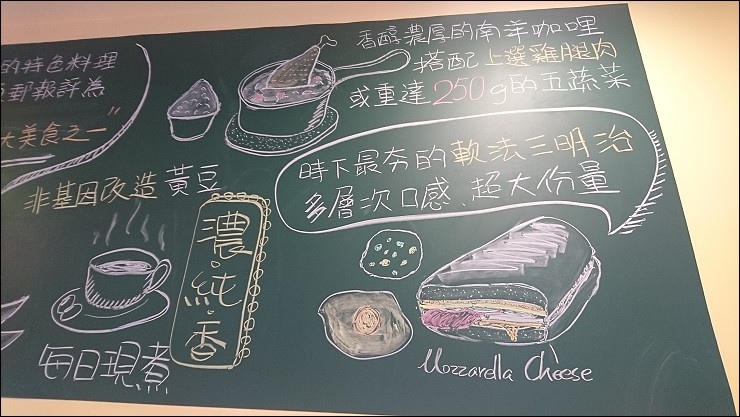 的特色料理
郵報評為
大美食之一"
香醇濃厚的南羊咖哩
搭配上選雞腿肉
或重達250g的五蔬菜
時下最夯的軟法三明治
多層次口感、超大份量
非基因改造黃豆
濃·純·香
每日現煮
Mozzarella Cheese